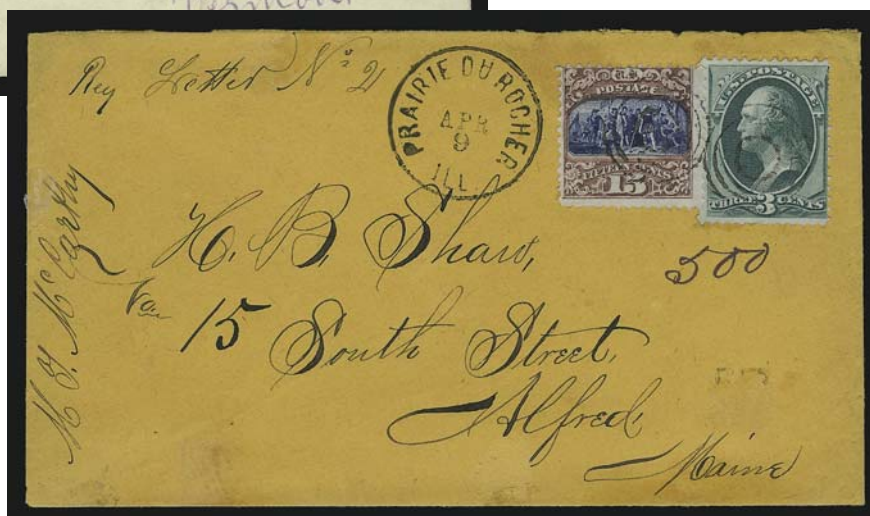 Vermont
Reg Letter No 21
PRAIRIE DU ROCHER
APR
9
ILL.
U.S.
POSTAGE
FIFTEEN CENTS
15
U.S. POSTAGE
THREE 3 CENTS
H. B. Shaw,
500
15 South Street,
Alfred,
Maine
McCarthy